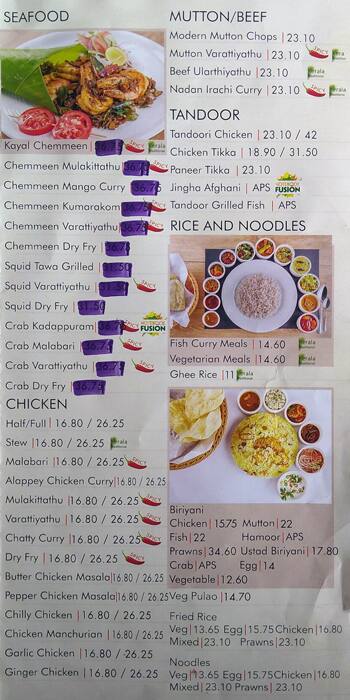 SEAFOOD
Kayal Chemmeen | 36.75 SPICY Kerala
Chemmeen Mulakittathu | 36.75 SPICY
Chemmeen Mango Curry | 36.75
Chemmeen Kumarakom | 36.75 SPICY
Chemmeen Varattiyathu | 36.75 SPICY
Chemmeen Dry Fry | 36.75
Squid Tawa Grilled | 31.50
Squid Varattiyathu | 31.50 SPICY
Squid Dry Fry | 31.50
Crab Kadappuram | 36.75 SPICY FUSION
Crab Malabari | 36.75 SPICY
Crab Varattiyathu | 36.75 SPICY
Crab Dry Fry | 36.75
CHICKEN
Half/Full | 16.80 / 26.25
Stew | 16.80 / 26.25 Kerala
Malabari | 16.80 / 26.25 SPICY
Alappey Chicken Curry | 16.80 / 26.25
Mulakittathu | 16.80 / 26.25 SPICY
Varattiyathu | 16.80 / 26.25 SPICY
Chatty Curry | 16.80 / 26.25 SPICY
Dry Fry | 16.80 / 26.25 SPICY
Butter Chicken Masala | 16.80 / 26.25
Pepper Chicken Masala | 16.80 / 26.25
Chilly Chicken | 16.80 / 26.25
Chicken Manchurian | 16.80 / 26.25
Garlic Chicken | 16.80 / 26.25
Ginger Chicken | 16.80 / 26.25
MUTTON/BEEF
Modern Mutton Chops | 23.10
Mutton Varattiyathu | 23.10 SPICY Kerala
Beef Ularthiyathu | 23.10 Kerala
Nadan Irachi Curry | 23.10 SPICY Kerala
TANDOOR
Tandoori Chicken | 23.10 / 42
Chicken Tikka | 18.90 / 31.50
Paneer Tikka | 23.10
Jingha Afghani | APS FUSION
Tandoor Grilled Fish | APS
RICE AND NOODLES
Fish Curry Meals | 14.60 Kerala
Vegetarian Meals | 14.60 Kerala
Ghee Rice | 11 Kerala
Biriyani
Chicken | 1575 Mutton | 22
Fish | 22 Hamoor | APS
Prawns | 34.60 Ustad Biriyani | 17.80
Crab | APS Egg | 14
Vegetable | 12.60
Veg Pulao | 14.70
Fried Rice
Veg | 13.65 Egg | 15.75 Chicken | 16.80
Mixed | 23.10 Prawns | 23.10
Noodles
Veg | 13.65 Egg | 15.75 Chicken | 16.80
Mixed | 23.10 Prawns | 23.10